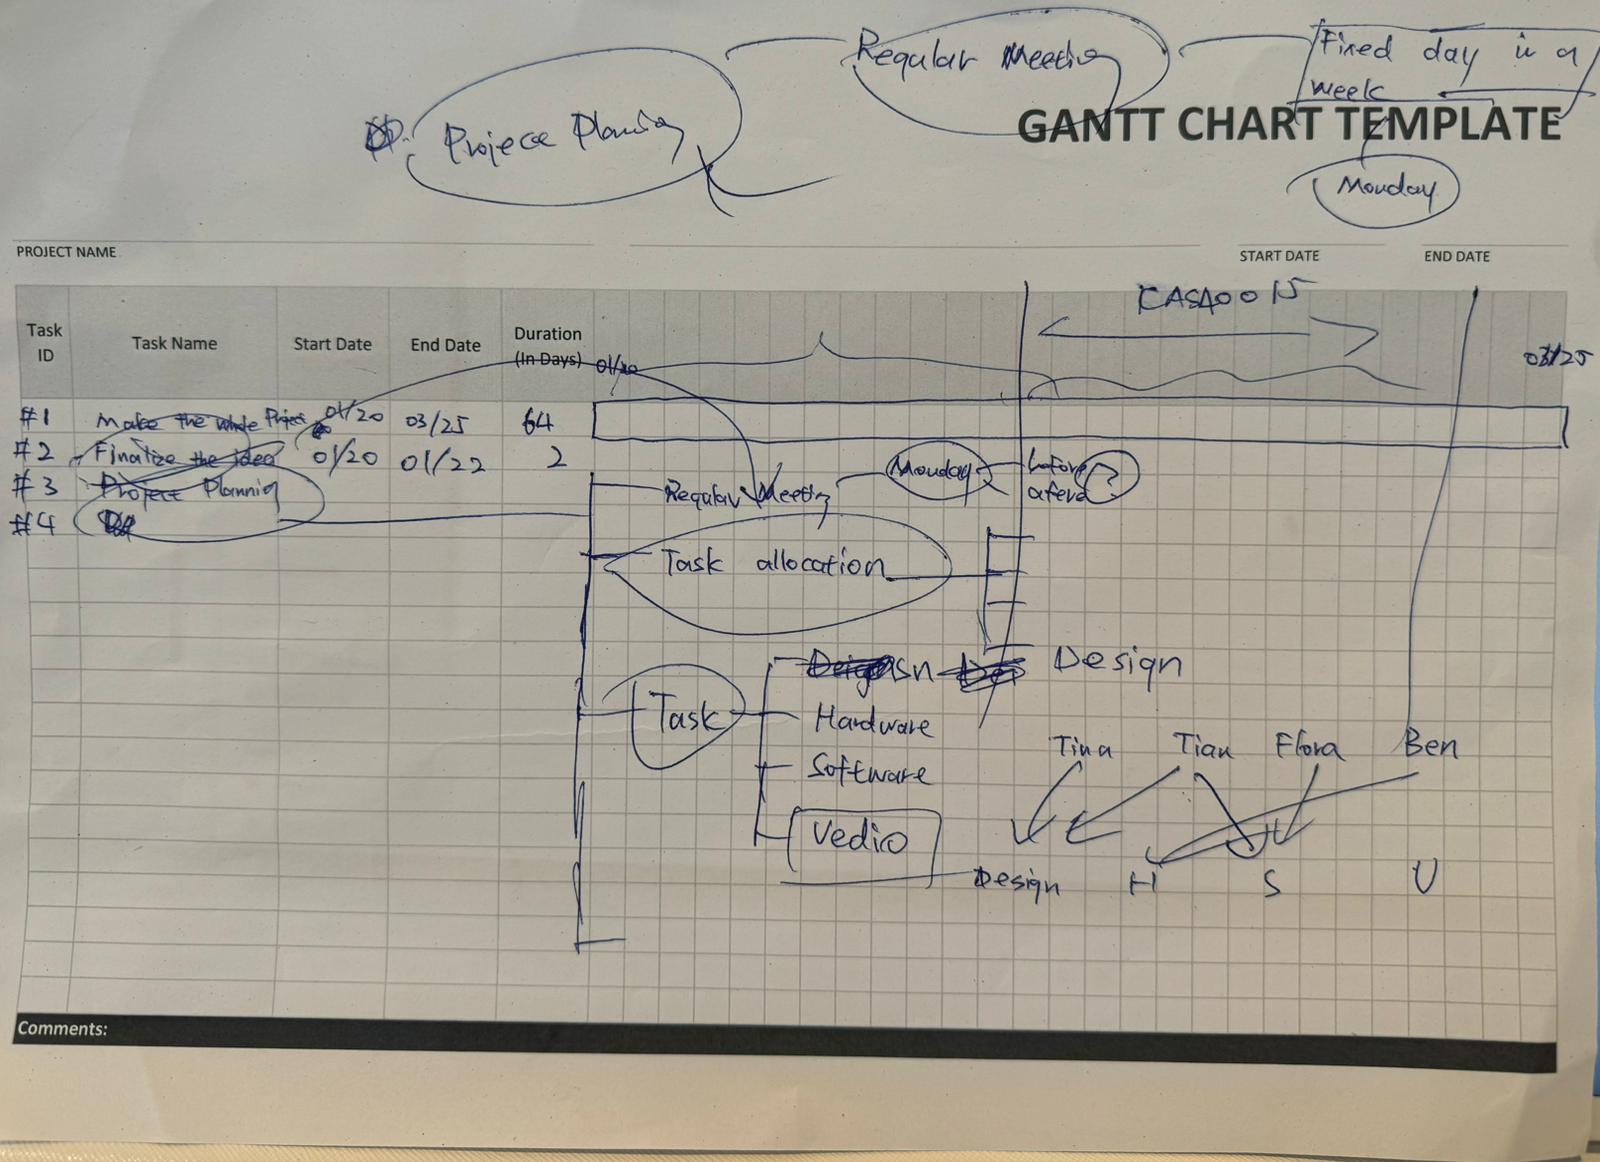 Regular Meeting
Fixed day in a
week
Projece Planning
GANTT CHART TEMPLATE
Monday
PROJECT NAME
START DATE
END DATE
CASA0015
Task
ID
Task Name
Start Date
End Date
Duration
(In Days)
01/20
03/25
#1 Make the whole Project 01/20 03/25 64
#2 Finalize the idea 01/20 01/22 2
#3 Project Planning
#4
Regular Meeting
Monday
before
?
Task allocation
Design
Task
Hardware
Software
Vedio
Tina Tian Flora Ben
Design H S V
Comments: